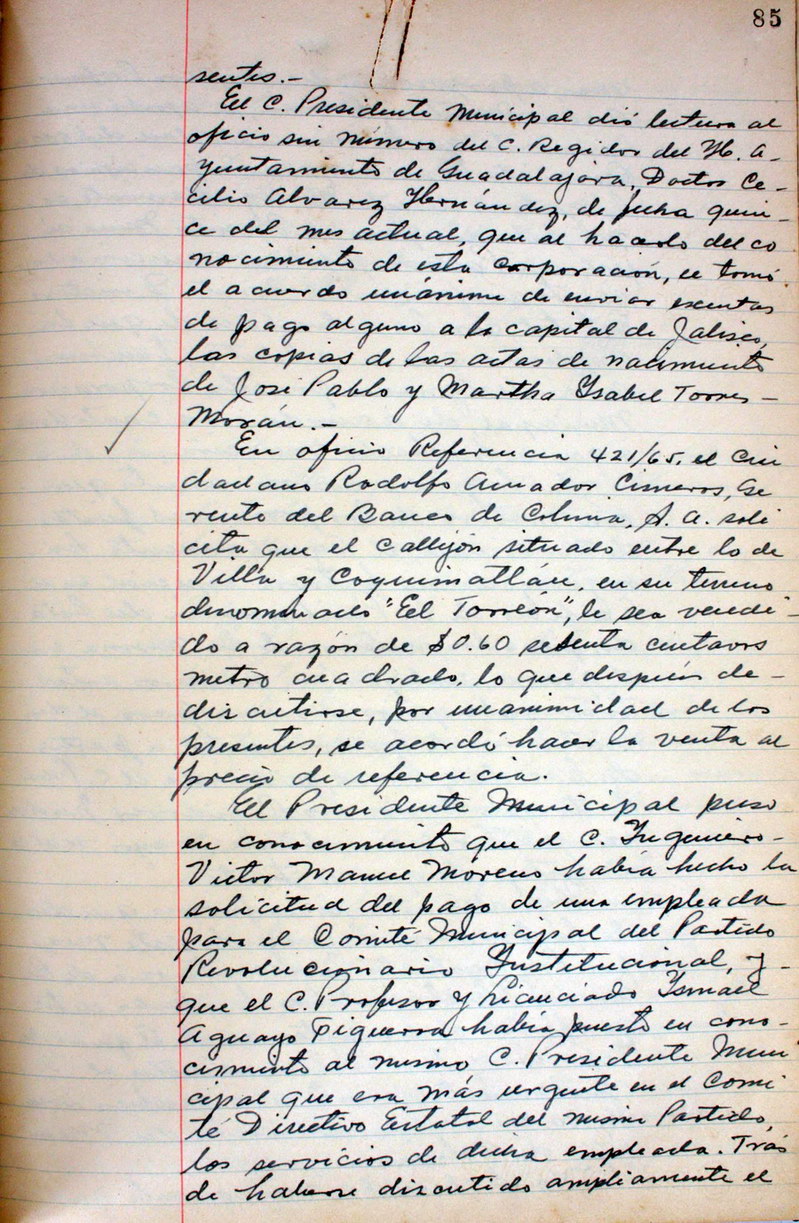 85
sentes.-
El C. Presidente Municipal dió lectura al
oficio sin número del C. Regidor del H. A-
yuntamiento de Guadalajara, Doctor Ce-
cilio Alvarez Hernández, de fecha quin-
ce del mes actual, que al hacerlo del co
nocimiento de esta corporación, se tomó
el acuerdo unánime de enviar exentas
de pago alguno a la capital de Jalisco,
las copias de las actas de nacimiento
de José Pablo y Martha Ysabel Torres-
Morán.-
En oficio Referencia 421/65, el ciu
dadano Rodolfo Amador Cisneros, Ge
rente del Banco de Colima, S. A. soli
cita que el callejón situado entre lo de
Villa y Coquimatlán, en su terreno
denominado "El Torreón", le sea vendi-
do a razón de $0.60 sesenta centavos
metro cuadrado, lo que después de-
discutirse, por unanimidad de los
presentes, se acordó hacer la venta al
precio de referencia.
El Presidente Municipal puso
en conocimiento que el C. Yngeniero-
Victor Manuel Moreno había hecho la
solicitud del pago de una empleada
para el Comité Municipal del Partido
Revolucionario Ynstitucional, y-
que el C. Profesor y Licenciado Ysmael
Aguayo Figueroa había puesto en cono-
cimiento al mismo C. Presidente Muni
cipal que era más urgente en el Comi
té Directivo Estatal del mismo Partido,
los servicios de dicha empleada. Trás
de haberse discutido ampliamente el